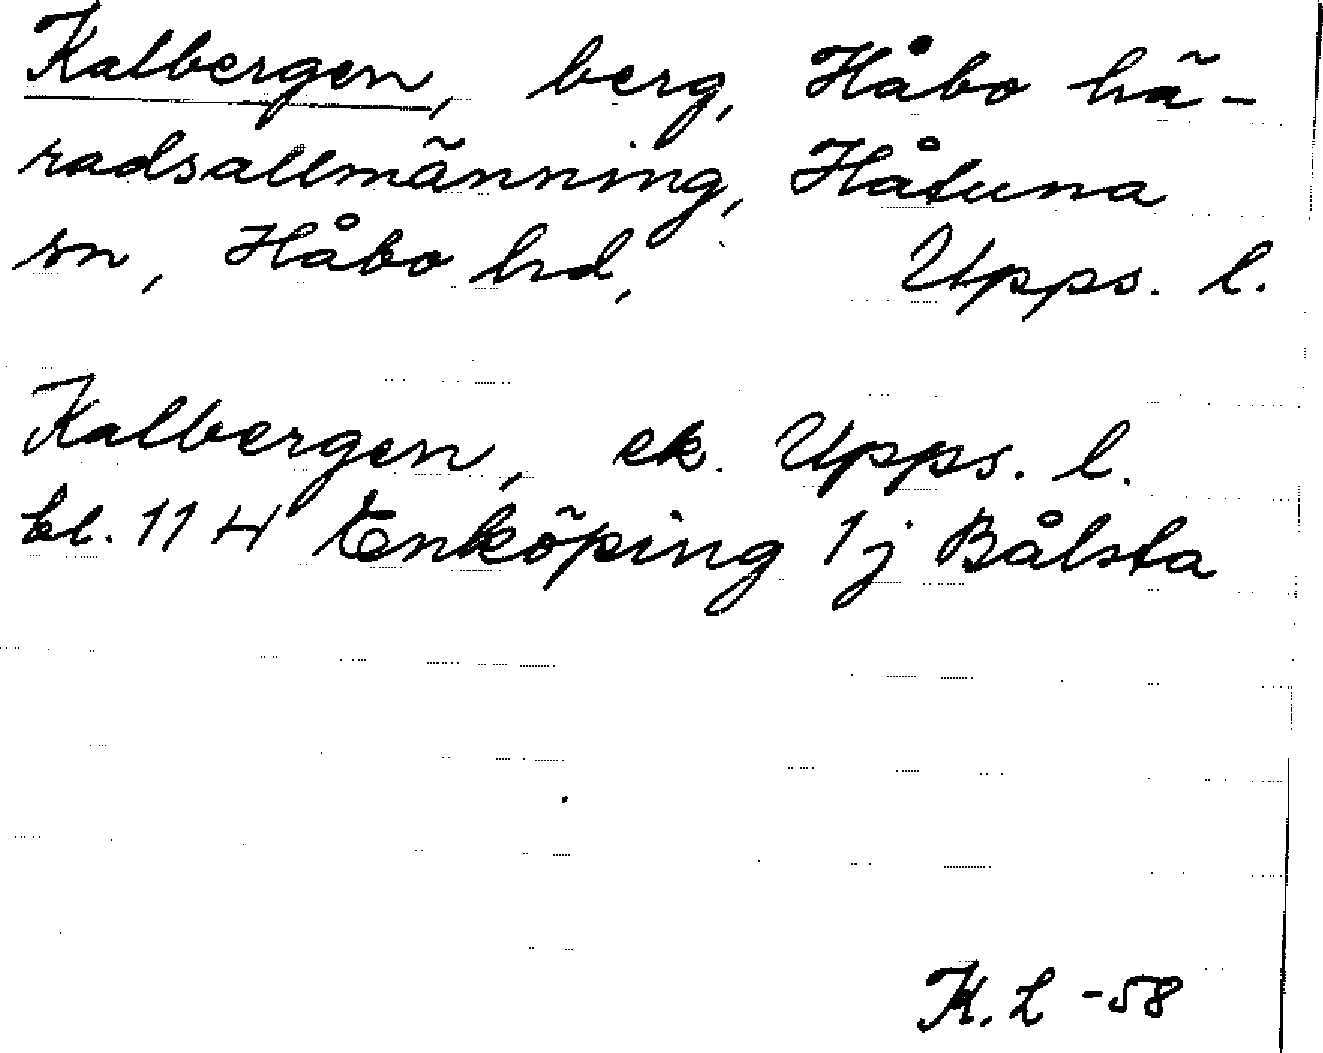 Kalbergen, berg, Håbo hä-
radsallmänning, Håtuna
sn, Håbo hd, Upps. l.
Kalbergen, ek. Upps. l.
bl. 114 Enköping 1j Bålsta
K. L -58